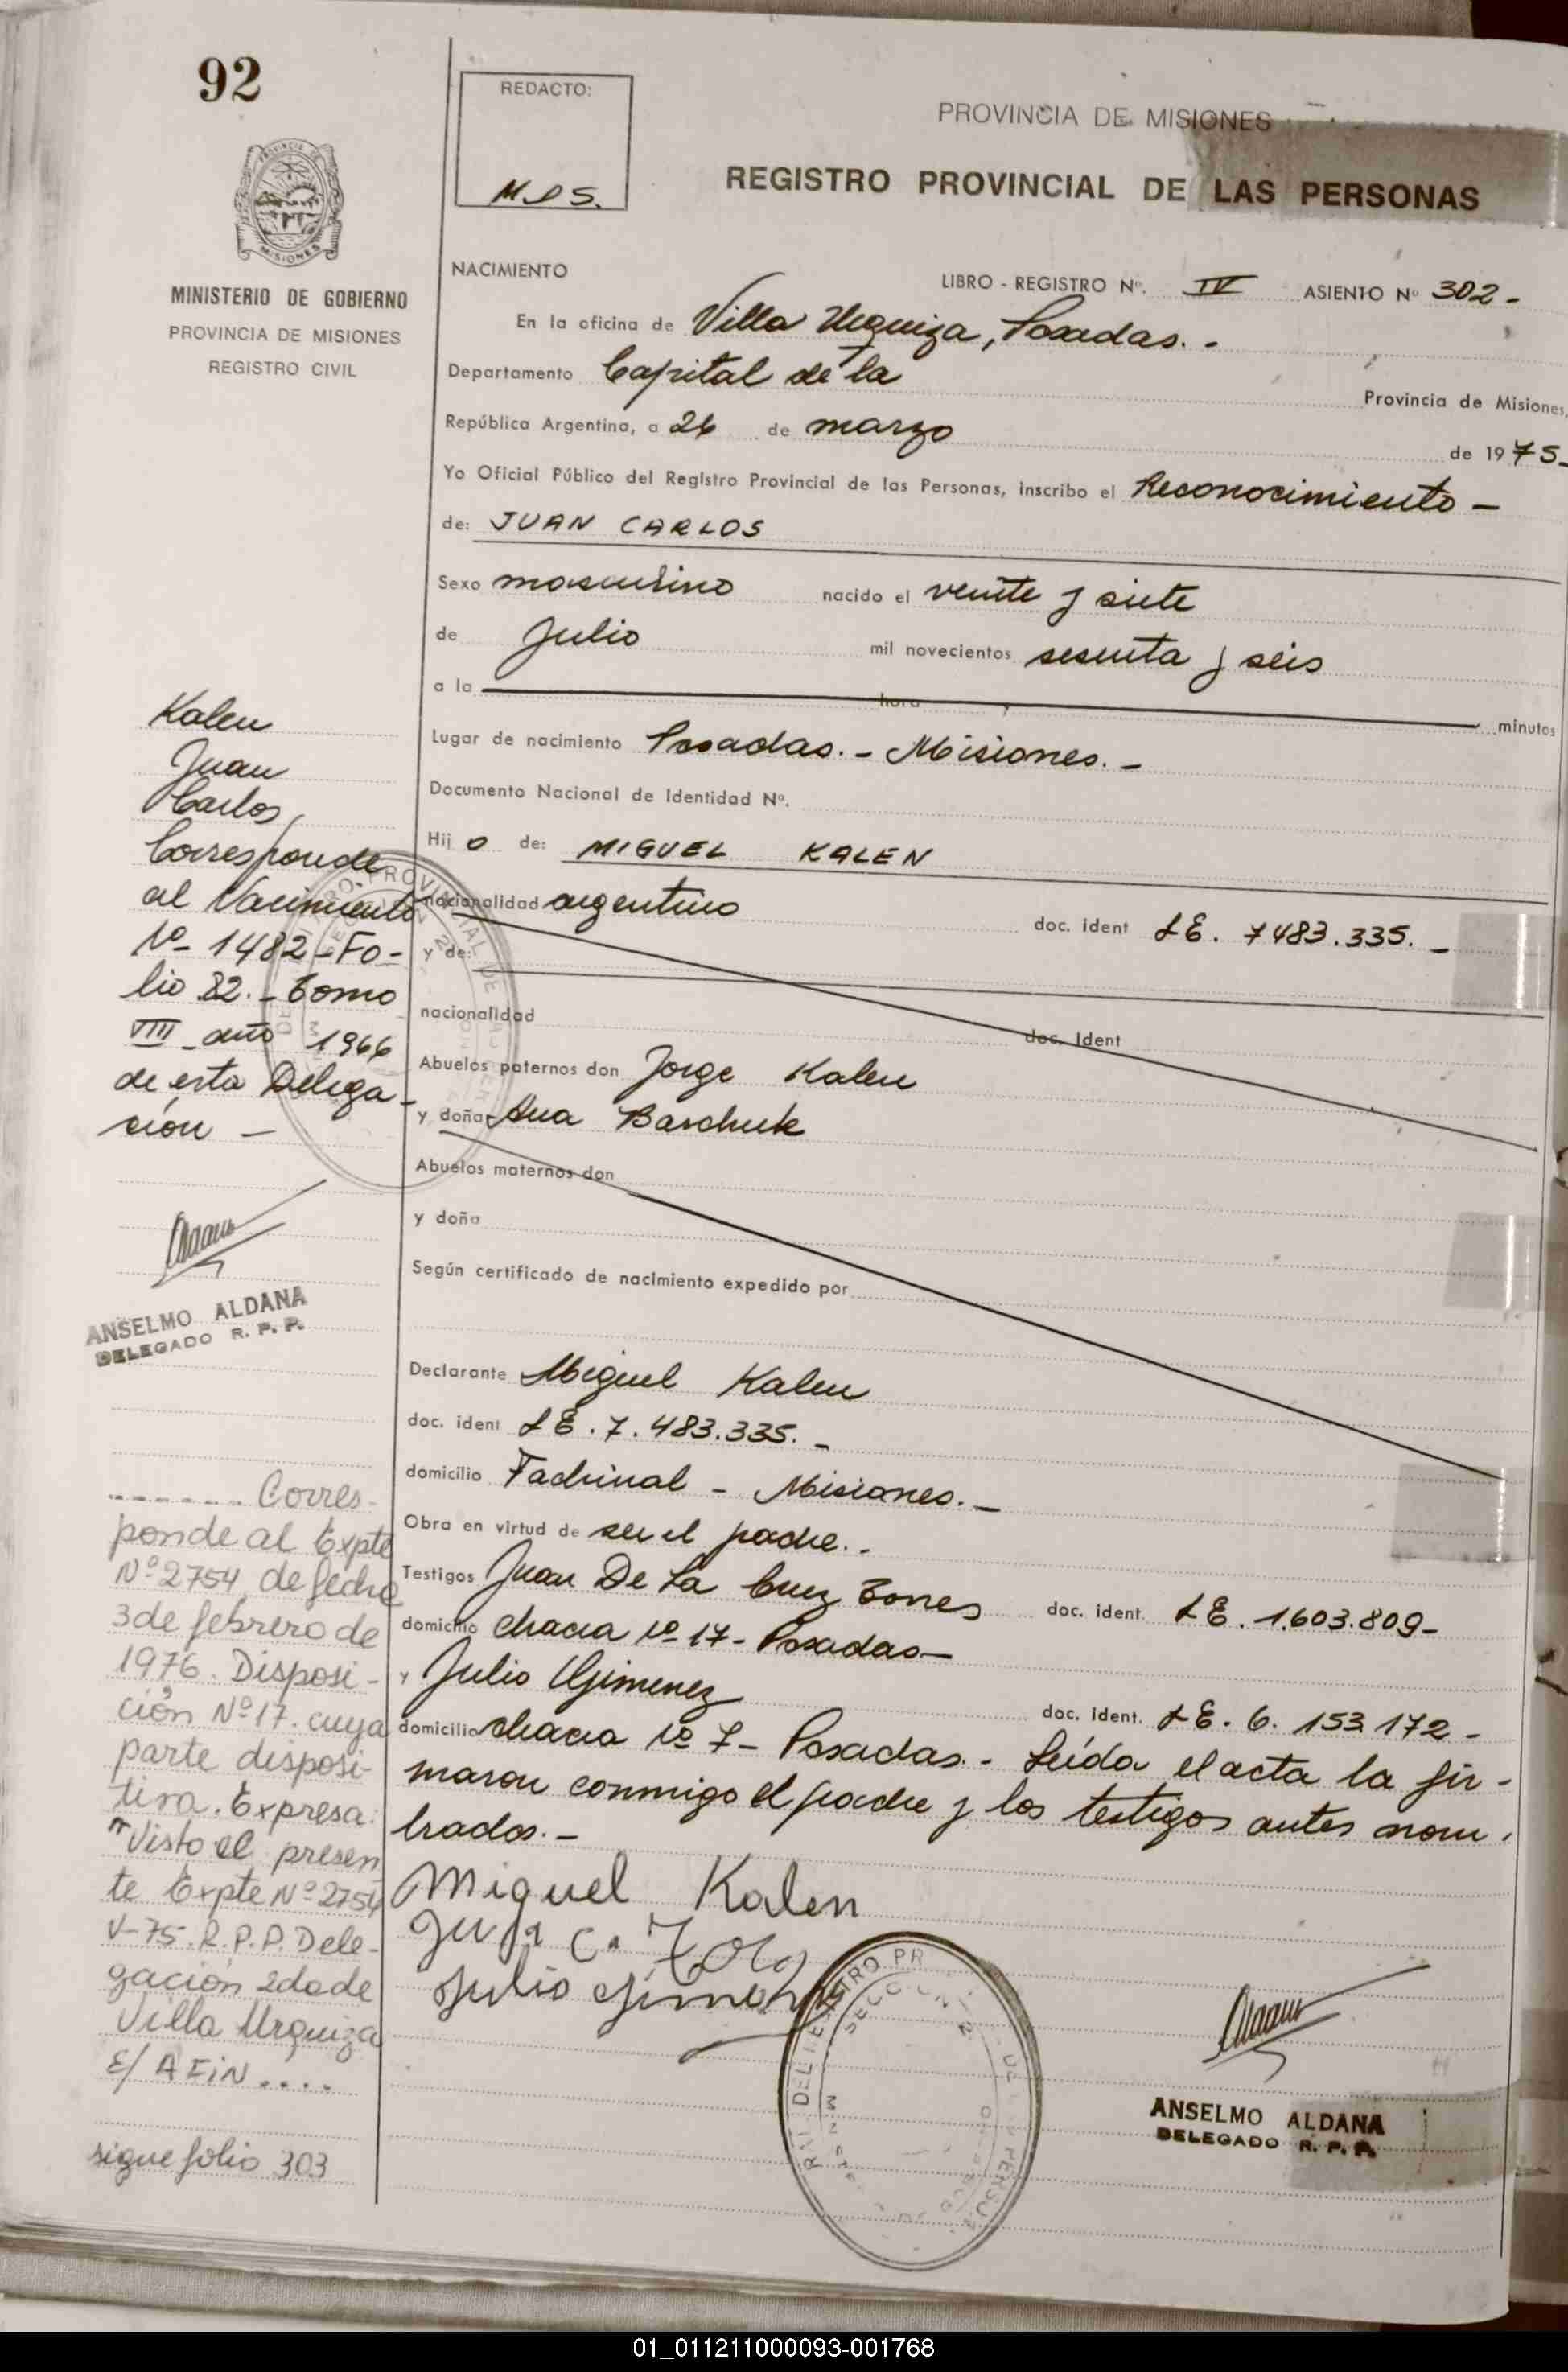 92
REDACTO:
M.D.S.
PROVINCIA DE MISIONES
REGISTRO PROVINCIAL DE LAS PERSONAS
MISIONES
MINISTERIO DE GOBIERNO
PROVINCIA DE MISIONES
REGISTRO CIVIL
NACIMIENTO
LIBRO - REGISTRO Nº. IV ASIENTO Nº 302 -
En la oficina de Villa Urquiza, Posadas. -
Departamento Capital de la Provincia de Misiones,
República Argentina, a 26 de marzo de 1975-
Yo Oficial Público del Registro Provincial de las Personas, inscribo el Reconocimiento -
de: JUAN CARLOS
Sexo masculino nacido el veinte y siete
de Julio mil novecientos sesenta y seis
a la hora minutos
Lugar de nacimiento Posadas. - Misiones. -
Documento Nacional de Identidad Nº.
Hij o de: MIGUEL KALEN
nacionalidad argentino doc. ident L.E. 7483.335. -
y de:
nacionalidad doc. Ident
Abuelos paternos don Jorge Kalen
y doña Ana Barchuk
Abuelos maternos don
y doña
Según certificado de nacimiento expedido por
Declarante Miguel Kalen
doc. ident L.E. 7.483.335. -
domicilio Fachinal - Misiones. -
Obra en virtud de ser el padre. -
Testigos Juan De La Cruz Torres doc. ident. L.E. 1.603.809-
domicilio chacra Nº 17 - Posadas -
y Julio Gimenez doc. ident. L.E. 6.153.172 -
domicilio chacra Nº 7 - Posadas. - Leída el acta la fir-
maron conmigo el padre y los testigos antes nom-
brados. -
Miguel Kalen
Julio Gimenez
ANSELMO ALDANA
DELEGADO R. P. P.
Kalen
Juan
Carlos,
Corresponde
al Nacimiento
Nº 1482 - Fo-
lio 82. - Tomo
VIII - año 1966
de esta Delega-
ción -
ANSELMO ALDANA
DELEGADO R. P. P.
------- Corres-
ponde al Expte
Nº 2754 de fecha
3 de febrero de
1976. Disposi-
ción Nº 17. cuya
parte disposi-
tiva. Expresa:
"Visto el presen
te Expte Nº 2754
V-75. R.P.P. Dele-
gación 2da de
Villa Urquiza
E/ A FIN ....
sigue folio 303
01_011211000093-001768